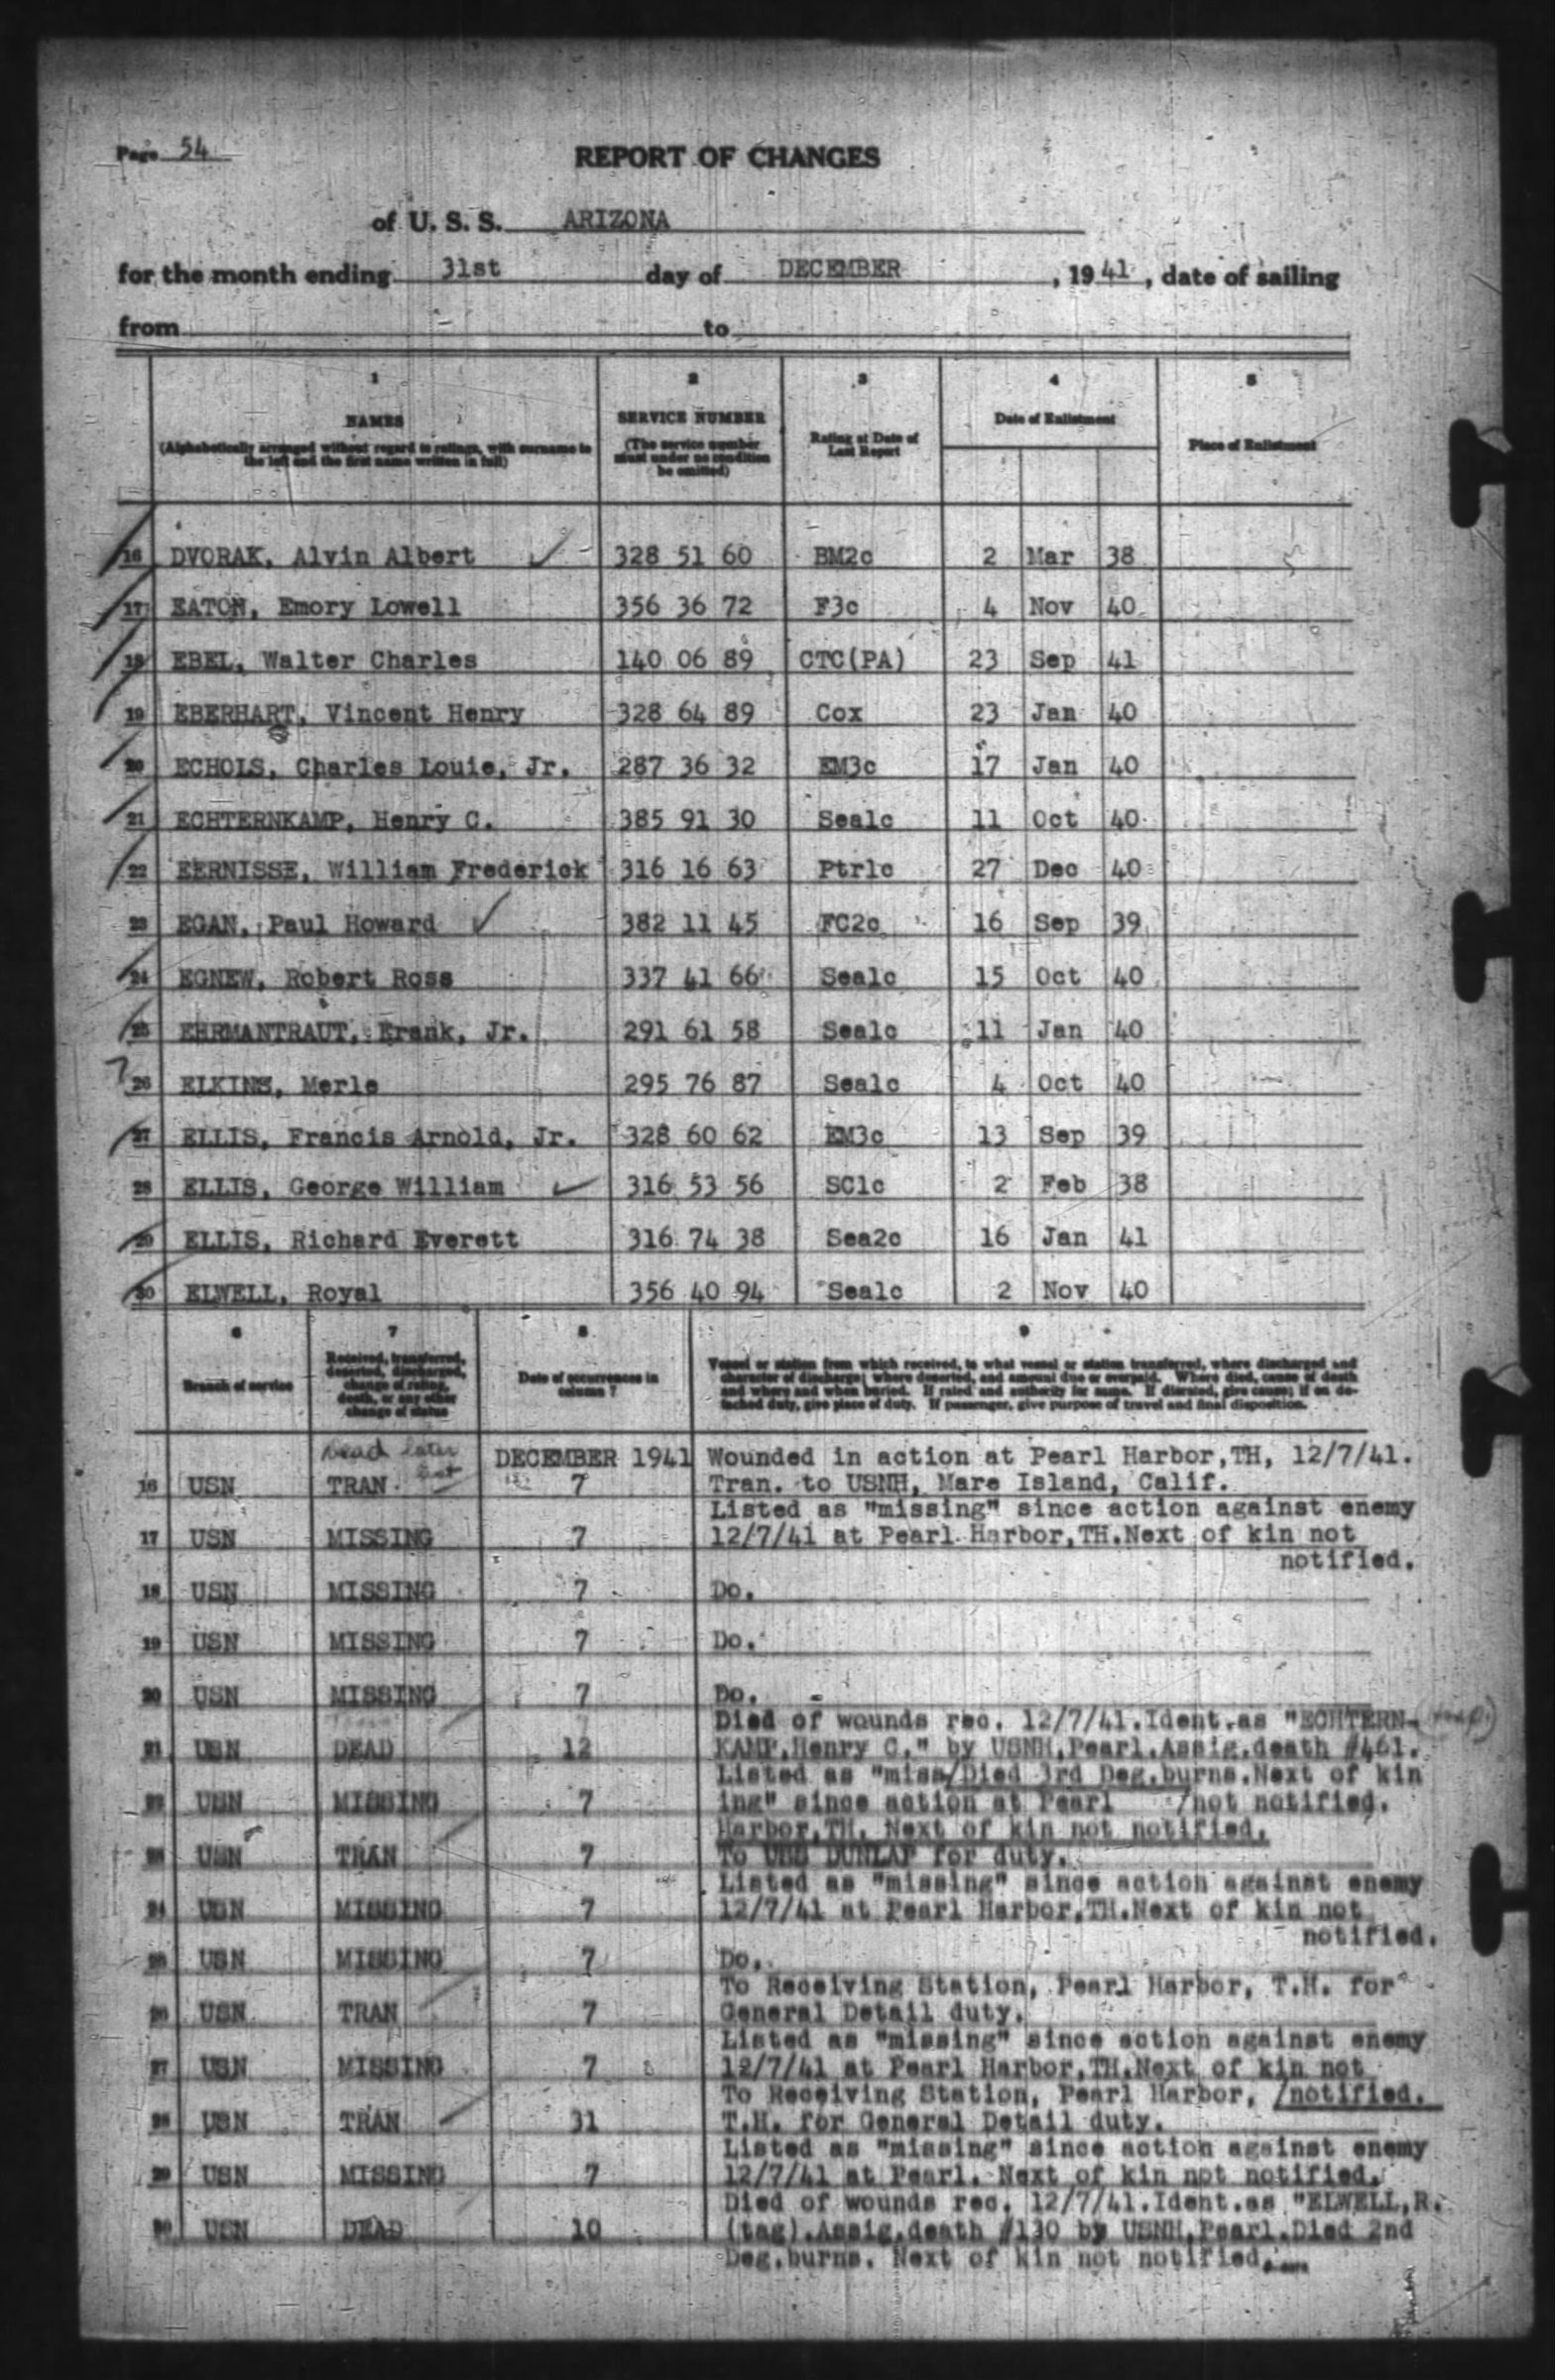 Page 54
REPORT OF CHANGES
of U. S. S. ARIZONA
for the month ending 31st day of DECEMBER, 1941, date of sailing
from to
1 2 3 4 5
NAMES
(Alphabetically arranged without regard to ratings, with surname to the left and the first name written in full)
SERVICE NUMBER
(The service number must under no condition be omitted)
Rating at Date of Last Report
Date of Enlistment
Place of Enlistment
16 DVORAK, Alvin Albert ✓ 328 51 60 BM2c 2 Mar 38
17 EATON, Emory Lowell 356 36 72 F3c 4 Nov 40
18 EBEL, Walter Charles 140 06 89 CTC(PA) 23 Sep 41
19 EBERHART, Vincent Henry 328 64 89 Cox 23 Jan 40
20 ECHOLS, Charles Louie, Jr. 287 36 32 EM3c 17 Jan 40
21 ECHTERNKAMP, Henry C. 385 91 30 Sea1c 11 Oct 40
22 EERNISSE, William Frederick 316 16 63 Ptr1c 27 Dec 40
23 EGAN, Paul Howard ✓ 382 11 45 FC2c 16 Sep 39
24 EGNEW, Robert Ross 337 41 66 Sea1c 15 Oct 40
25 EHRMANTRAUT, Frank, Jr. 291 61 58 Sea1c 11 Jan 40
? 26 ELKINS, Merle 295 76 87 Sea1c 4 Oct 40
27 ELLIS, Francis Arnold, Jr. 328 60 62 EM3c 13 Sep 39
28 ELLIS, George William ✓ 316 53 56 SC1c 2 Feb 38
29 ELLIS, Richard Everett 316 74 38 Sea2c 16 Jan 41
30 ELWELL, Royal 356 40 94 Sea1c 2 Nov 40
6 7 8 9
Branch of service
Received, transferred, deserted, discharged, change of rating, death, or any other change of status
Date of occurrences in column 7
Vessel or station from which received, to what vessel or station transferred, where discharged and
character of discharge; where deserted, and amount due or overpaid. Where died, cause of death
and where and when buried. If rated and authority for same. If disrated, give cause; if on de-
tached duty, give place of duty. If passenger, give purpose of travel and final disposition.
Dead later
DECEMBER 1941 Wounded in action at Pearl Harbor,TH, 12/7/41.
16 USN TRAN 7 Tran. to USNH, Mare Island, Calif.
Listed as "missing" since action against enemy
17 USN MISSING 7 12/7/41 at Pearl Harbor,TH.Next of kin not
notified.
18 USN MISSING 7 Do.
19 USN MISSING 7 Do.
20 USN MISSING 7 Do.
Died of wounds rec. 12/7/41.Ident.as "ECHTERN-
21 USN DEAD 12 KAMP,Henry C." by USNH,Pearl.Assig.death #461.
Listed as "miss/Died 3rd Deg.burns.Next of kin
22 USN MISSING 7 ing" since action at Pearl /not notified.
Harbor,TH. Next of kin not notified.
23 USN TRAN 7 To USS DUNLAP for duty.
Listed as "missing" since action against enemy
24 USN MISSING 7 12/7/41 at Pearl Harbor,TH.Next of kin not
notified.
25 USN MISSING 7 Do.
To Receiving Station, Pearl Harbor, T.H. for
26 USN TRAN 7 General Detail duty.
Listed as "missing" since action against enemy
27 USN MISSING 7 12/7/41 at Pearl Harbor,TH.Next of kin not
To Receiving Station, Pearl Harbor, /notified.
28 USN TRAN 31 T.H. for General Detail duty.
Listed as "missing" since action against enemy
29 USN MISSING 7 12/7/41 at Pearl. Next of kin not notified.
Died of wounds rec. 12/7/41.Ident.as "ELWELL,R.
30 USN DEAD 10 (tag).Assig.death #130 by USNH,Pearl.Died 2nd
Deg.burns. Next of kin not notified.